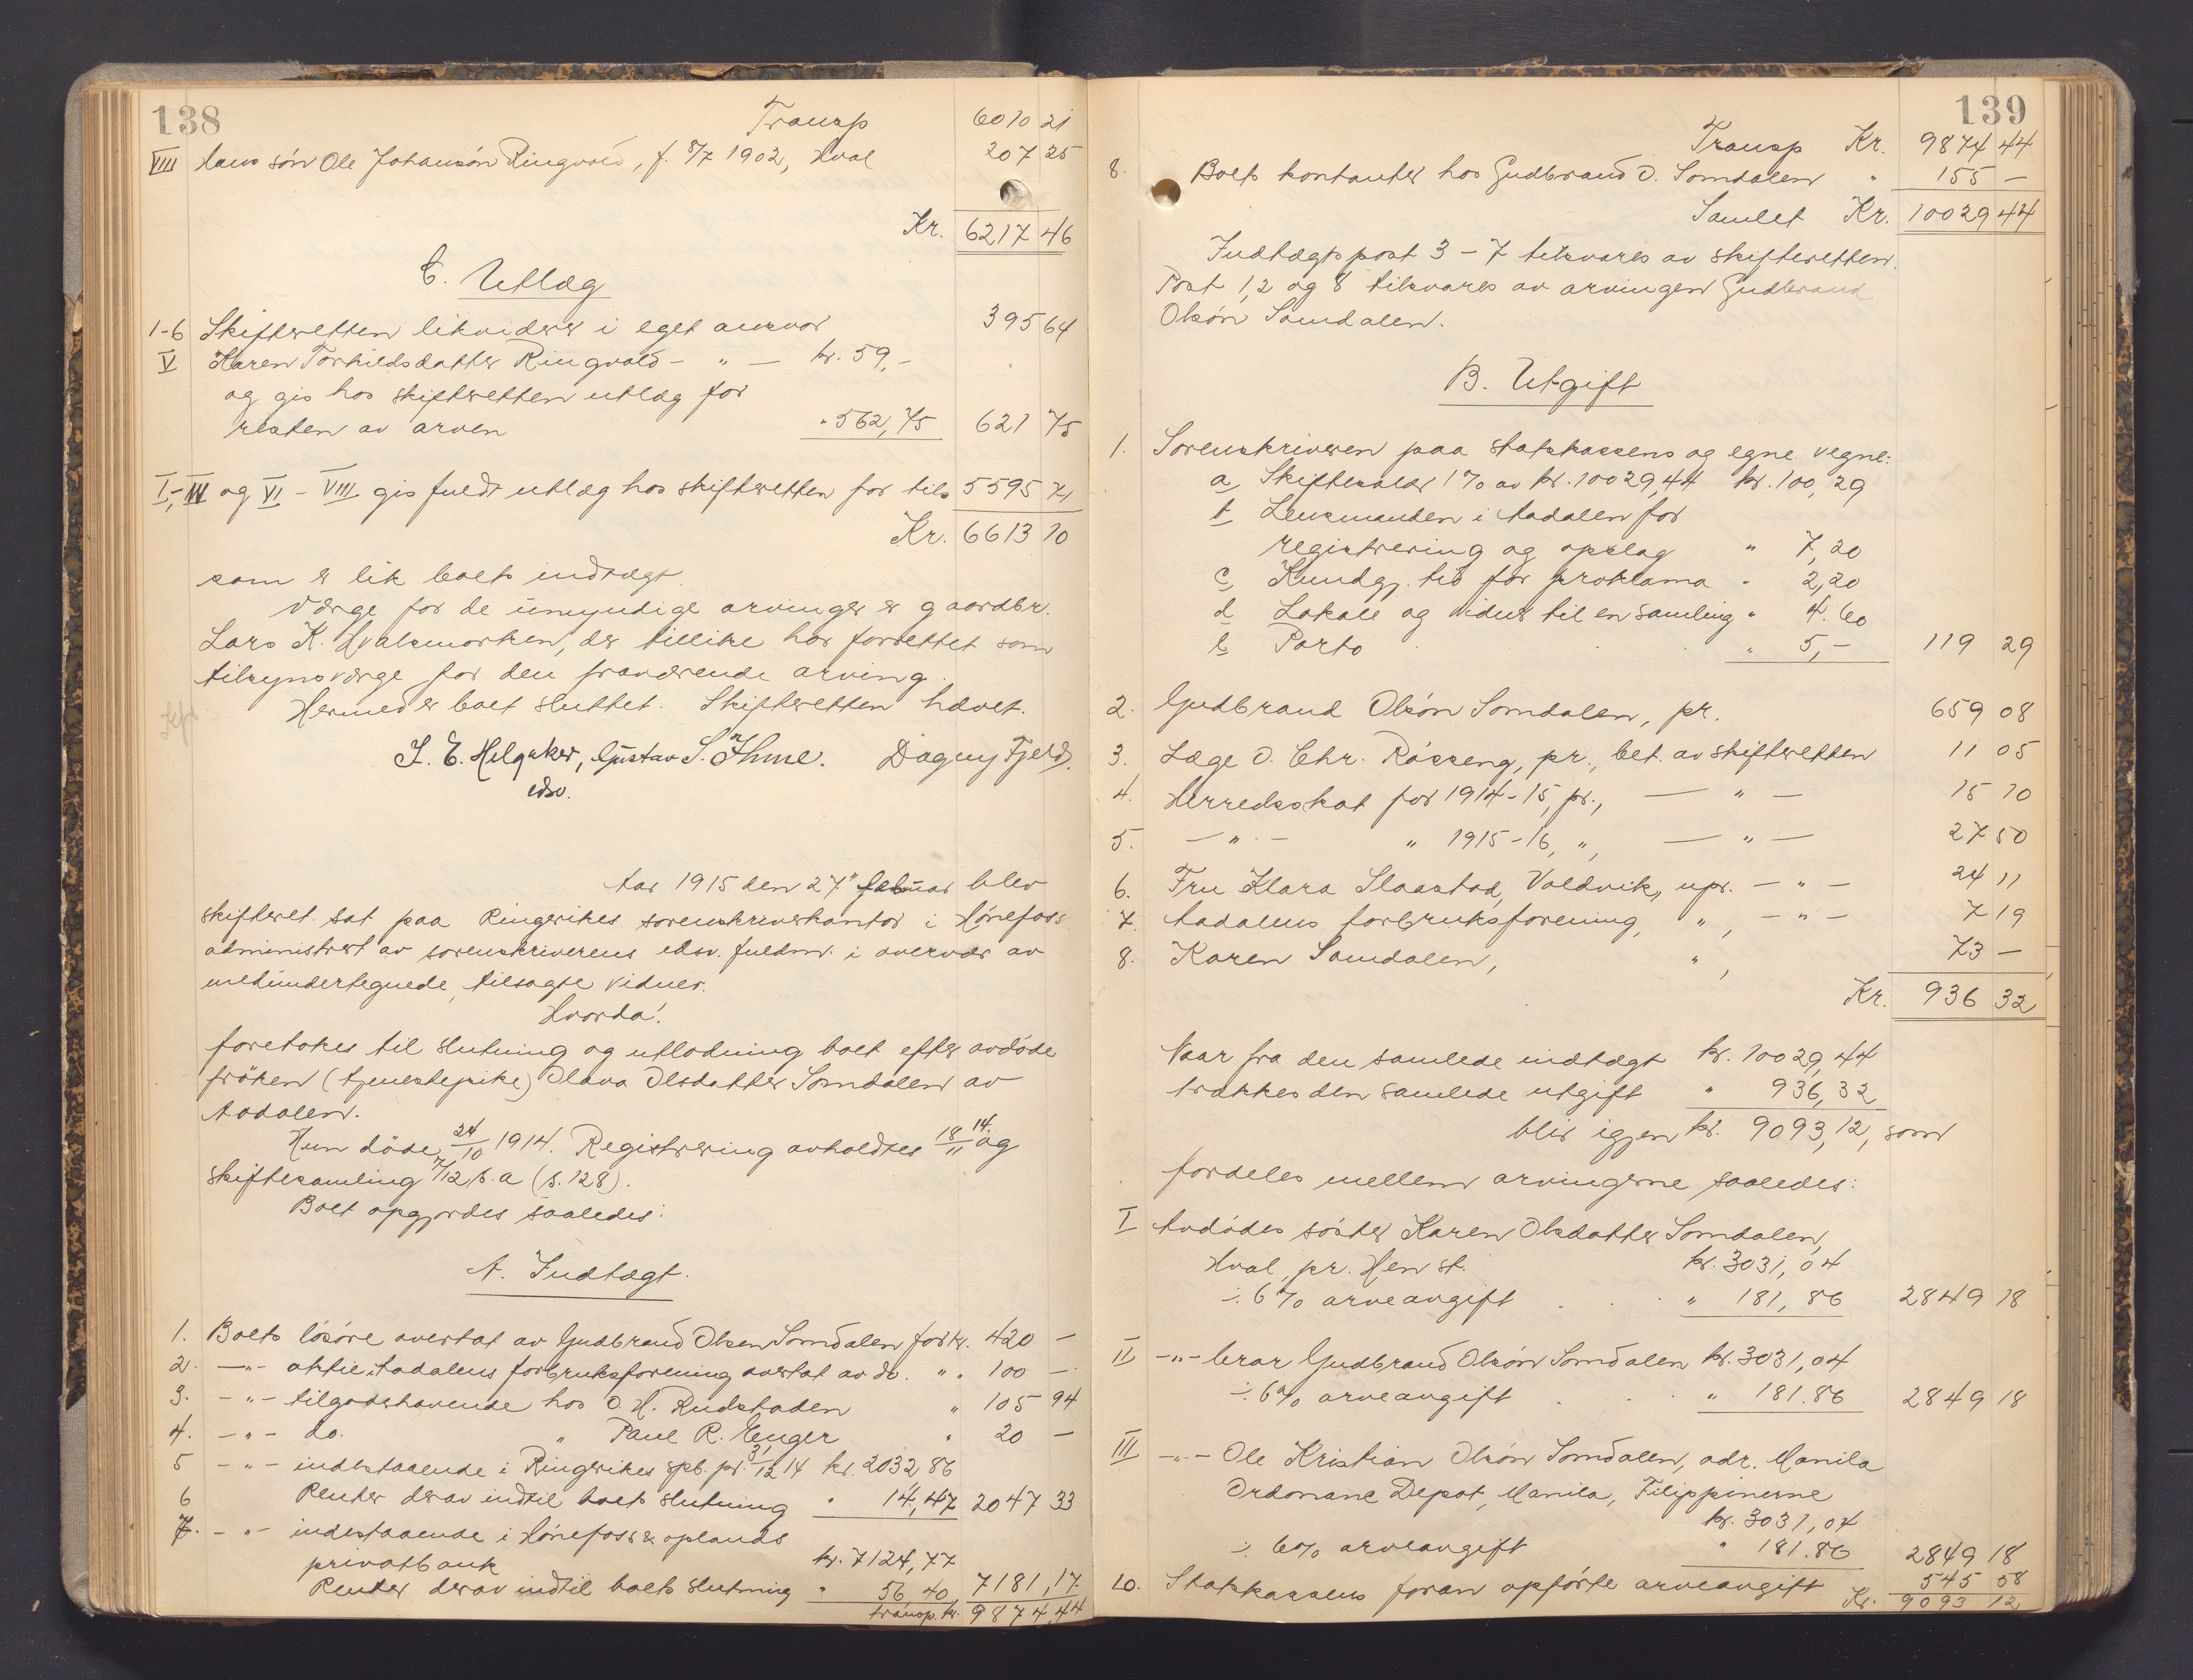 138
Transp 6010 21
VIII Hans søn Ole Johansøn Ringvold, f. 8/7 1902, Hval 207 25
Kr. 6217 46
C. Utlæg
1-6 Skifteretten likviderer i eget ansvar 395 64
V Karen Torhildsdatter Ringvold - " - kr. 59,-
og gis hos skifteretten utlæg for
resten av arven " 562,75 621 75
I,-III og VI - VIII gis fuldt utlæg hos skifteretten for tils 5595 71
Kr. 6613 10
som er lik boets indtægt.
Værge for de umyndige arvinger er gaardbr.
Lars K. Hvalsmorken, der tillike har forrettet som
tilsynsværge for den fraværende arving.
Hermed er boet sluttet. Skifteretten hævet.
Gustav S. Ihme. Dagny Fjeld.
edsv.
Aar 1915 den 27" februar blev
skifteret sat paa Ringerikes sorenskriverkontor i Hønefoss
administrert av sorenskriverens edsv. fuldm. i overvær av
medundertegnede, tilsagte vidner.
Hvorda:
foretokes til slutning og utlodning boet efter avdøde
frøken (tjenestepike) Olava Olsdatter Somdalen av
Aadalen.
Hun døde 24/10 1914. Registrering avholdtes 18/11 14 og
skiftesamling 7/12 s.a (s. 128).
Boet opgjordes saaledes:
A. Indtægt.
1. Boets løsøre overtat av Gudbrand Olsen Somdalen for kr. 420 -
2. -"- aktie i Aadalens forbruksforening overtat av do. " " 100 -
3. -"- tilgodehavende hos O. H. Rudstaden " 105 94
4. -"- do. " Paul R. Enger " 20 -
5 -"- indestaaende i Ringerikes spb. pr. 31/12 14 kr. 2032 86
6 Renter derav indtil boets slutning " 14,47 2047 33
7. -"- indestaaende i Hønefoss & oplands
privatbank kr. 7124,77
Renter derav indtil boets slutning " 56,40 7181,17
transp. kr. 9874,44
139
Transp Kr. 9874 44
8. Boets kontanter hos Gudbrand O. Somdalen " 155 -
Samlet Kr. 10029 44
Indtægtspost 3 - 7 tilsvares av skifteretten.
Post 1, 2 og 8 tilsvares av arvingen Gudbrand
Olsøn Somdalen.
B. Utgift
1. Sorenskriveren paa statskassens og egne vegne:
a, Skiftesaler 1% av kr. 10029,44 kr. 100,29
b Lensmanden i Aadalen for
registrering og opslag " 7,20
c, Kundgj. tid for proklama " 2,20
d Lokale og vidner til en samling " 4.60
e Porto " 5,- 119 29
2. Gudbrand Olsøn Somdalen, pr. 659 08
3. Læge O. Chr. Røsseng, pr., bet. av skifteretten 11 05
4. Herredsskat for 1914-15, pr., — " — 15 10
5. — " — " 1915-16, ", — " — 27 50
6. Fru Klara Slaastad, Valdvik, upr. - " - 24 11
7. Aadalens forbruksforening, ", - " - 7 19
8. Karen Somdalen, ", 73 -
Kr. 936 32
Naar fra den samlede indtægt kr. 10029,44
trækkes den samlede utgift " 936,32
blir igjen kr. 9093,12, som
fordeles mellem arvingerne saaledes:
I Avdødes søster Karen Olsdatter Somdalen,
Hval, pr. Hen st. kr. 3031,04
÷ 6% arveavgift " 181,86 2849 18
II -"- bror Gudbrand Olsøn Somdalen kr. 3031,04
÷ 6% arveavgift " 181.86 2849 18
III -"- Ole Kristian Olsøn Somdalen, adr. Manila
Ordonanc Depot, Manila, Filippinerne
kr. 3031,04
÷ 6% arveavgift " 181.86 2849 18
10. Statskassens foran opførte arveavgift 545 58
Kr. 9093 12